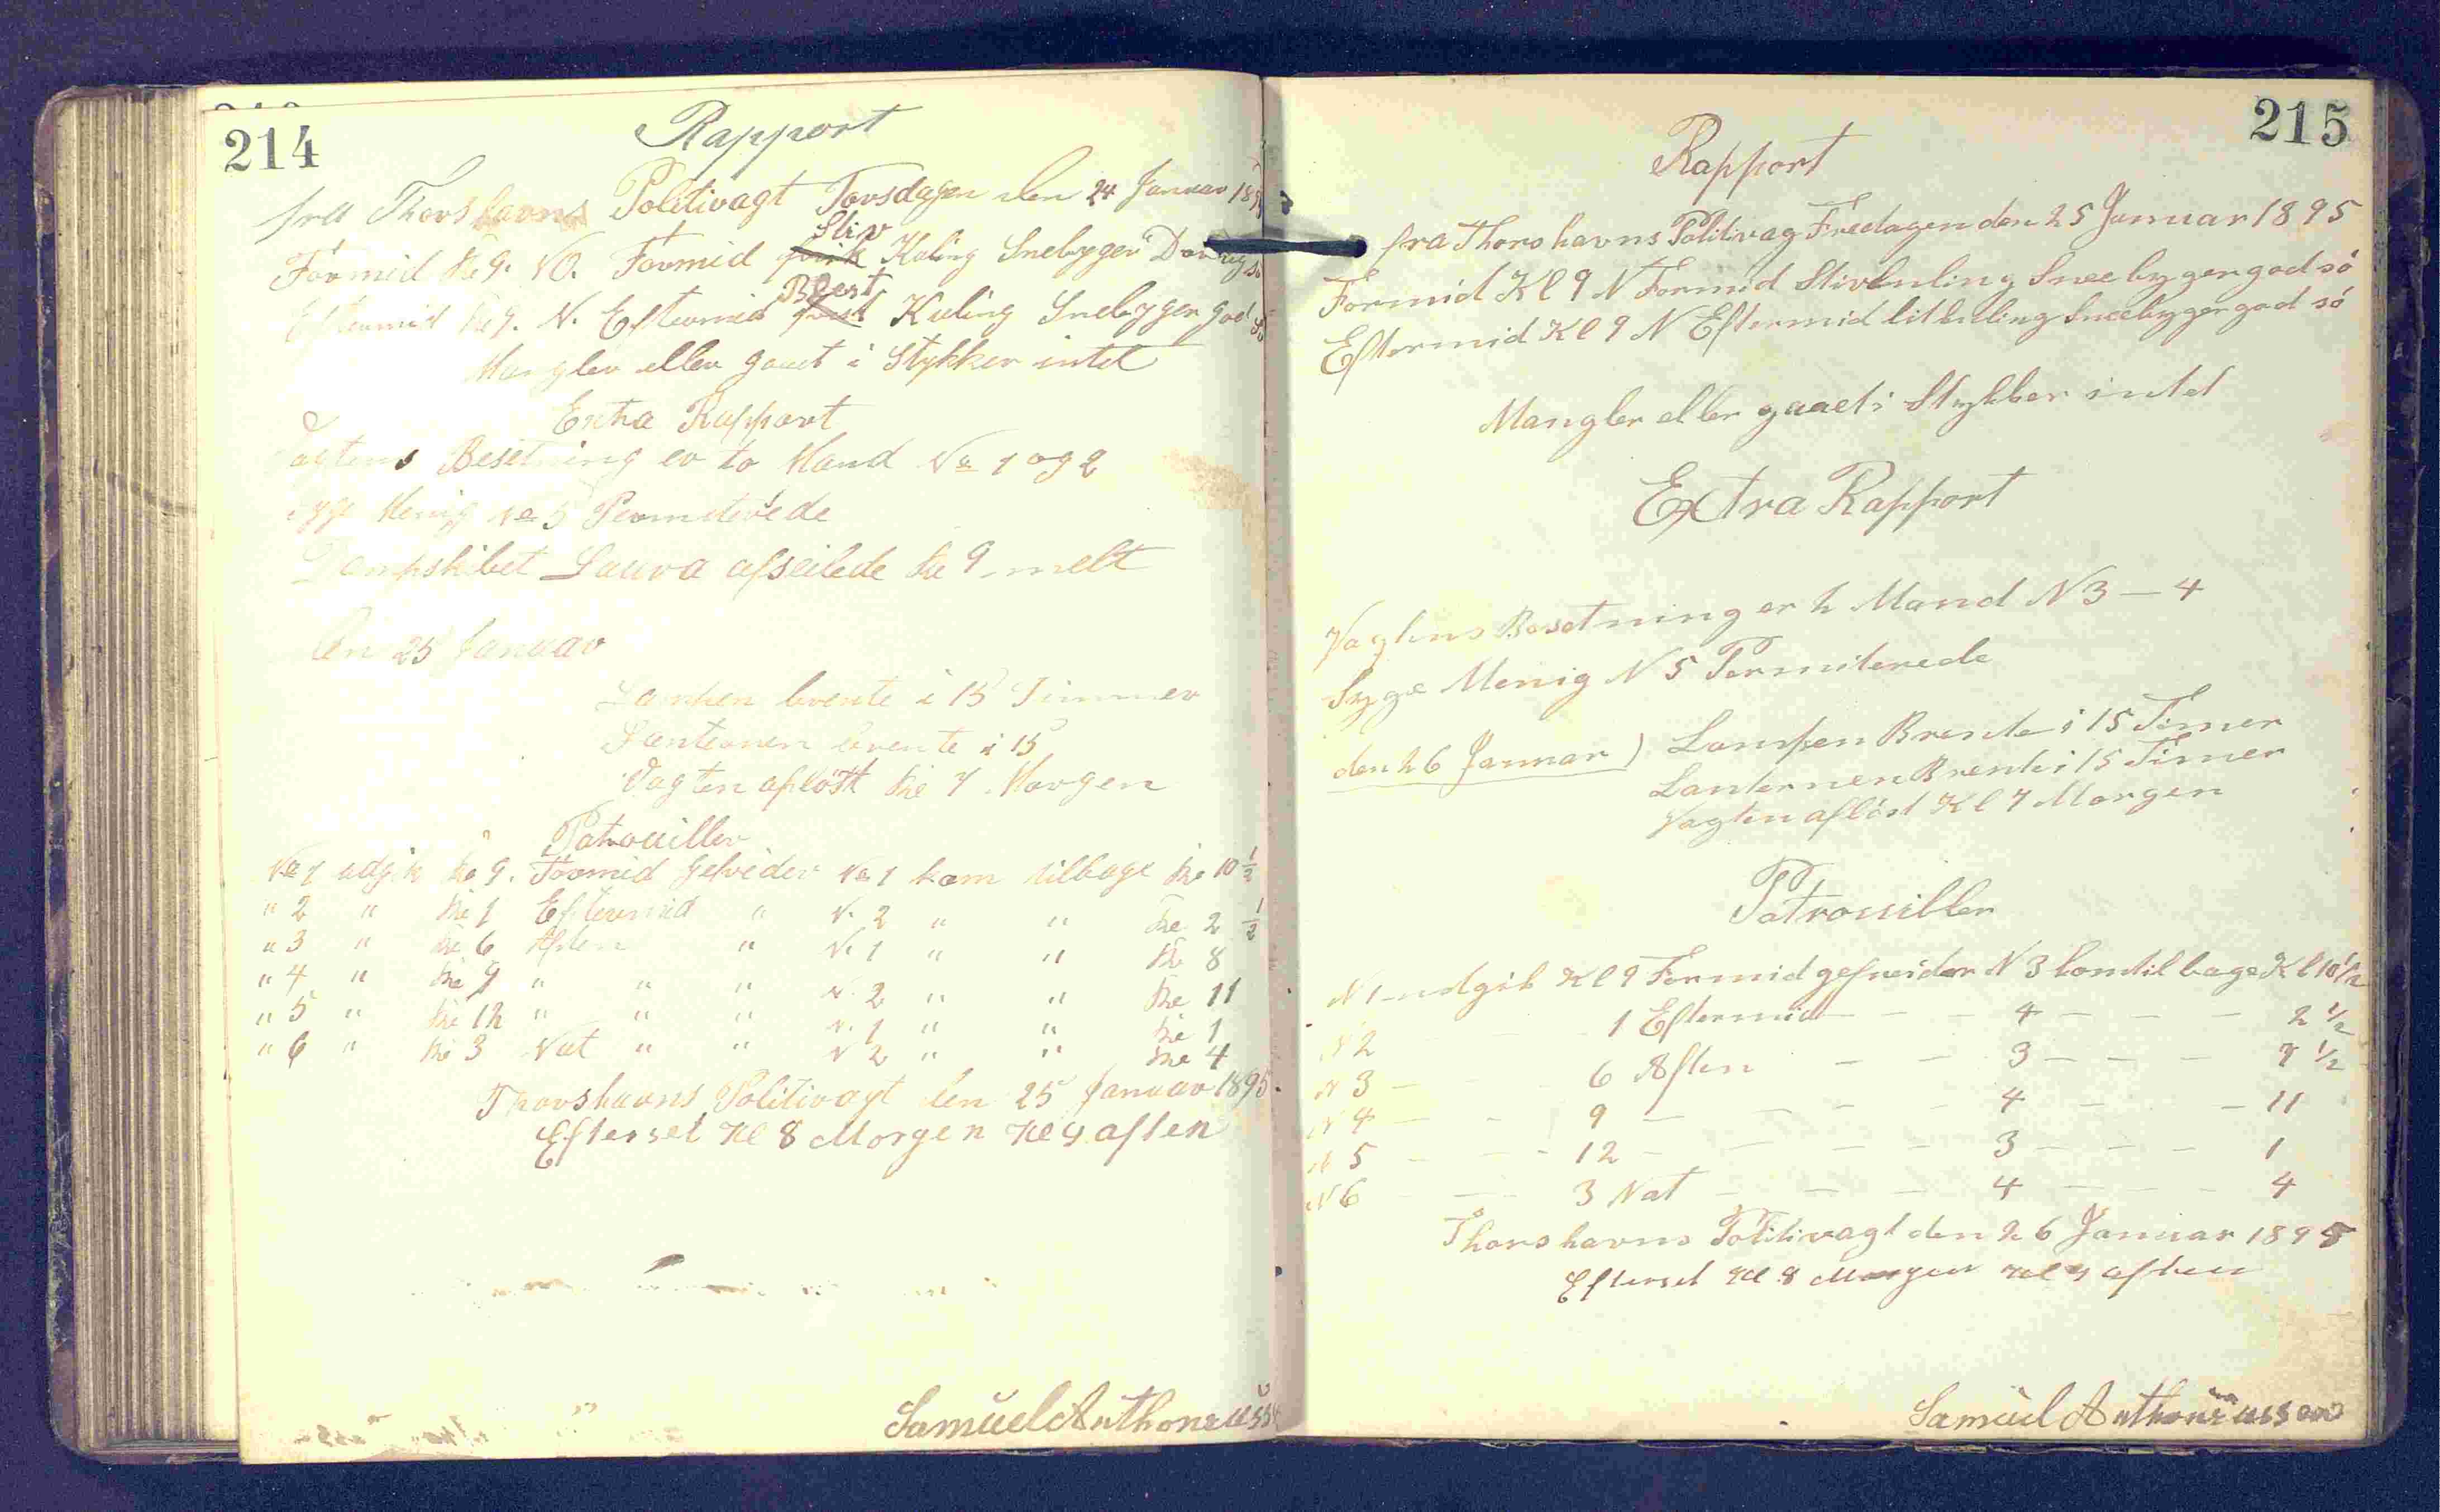 214
Rapport
fra Thorshavns Politivagt Torsdagen den 24 Januar 189
Stiv
Formid Kl 9. NO. Formid frisk Kuling Snebyger
Blest
Eftermid Kl 9. N. Eftermid frisk Kuling Snebyger god
Mangler eller gaaet i Stykker intet
Extra Rapport
Vagtens Besetning er to Mand No 1 og 2
syge Menig No 5 Permiterede
Dampskibet Laura afseilede Kl 9 melt
den 25 Januar
Lampen brente i 15 Timmer
Lanternen brente i 15
Vagten afløst Kl 7 Morgen
Patrouiller
No 1 udgik Kl 9. Formid Gefreider No 1 kom tilbage Kl 10 1/2
" 2 " Kl 1 Eftermid " N. 2 " " Kl 2 1/2
" 3 " Kl 6 Aften " N. 1 " " Kl 8
" 4 " Kl 9 " " " N. 2 " " Kl 11
" 5 " Kl 12 " " " N. 1 " " Kl 1
" 6 " Kl 3 Nat " " N 2 " " Kl 4
Thorshavns Politivagt den 25 Januar 1895.
Efterset Kl 8 Morgen Kl 9 aften
Samuel Anthoniuss
215
Rapport
fra Thorshavns Politivag Fredagen den 25 Januar 1895
Formid Kl 9 N Formid Stivkuling Sneebyger god sö
Eftermid Kl 9 N Eftermid litkuling Sneebyger god sö
Mangler eller gaaet i Stykker intet
Extra Rapport
Vagtens Besetning er 2 Mand N 3 — 4
Syge Menig N 5 Permiterede
den 26 Januar) Lampen Brente i 15 Timer
Lanternen Brente i 15 Timer
Vagten aflöst Kl 7 Morgen
Patrouiller
N 1 — udgik Kl 9 Formid gefreider N 3 kom tilbage Kl 10 1/2
N 2 — — 1 Eftermid — — — 4 — — — 2 1/2
N 3 — — 6 Aften — — 3 — — — 7 1/2
N 4 — — 9 — — — — 4 — — 11
N 5 — — 12 — — — — 3 — — — 1
N 6 — — 3 Nat — — — 4 — — — 4
Thorshavns Politivagt den 26 Januar 1895
Efterset Kl 8 Morgen Kl 9 aften
Samuel Anthoniussen